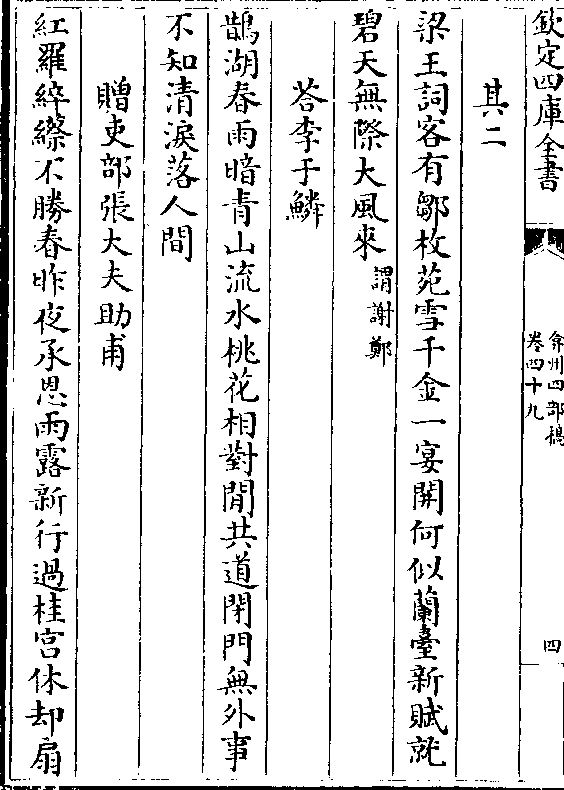 欽定四庫全書
弇州四部稿
卷四十九
四
其二
梁王詞客有鄒枚苑雪千金一宴開何似蘭臺新賦就
碧天無際大風來謂謝鄭
荅李于鱗
鵲湖春雨暗青山流水桃花相對閒共道閉門無外事
不知清淚落人間
贈吏部張大夫助甫
紅羅綷縩不勝春昨夜承恩雨露新行過桂宫休却扇